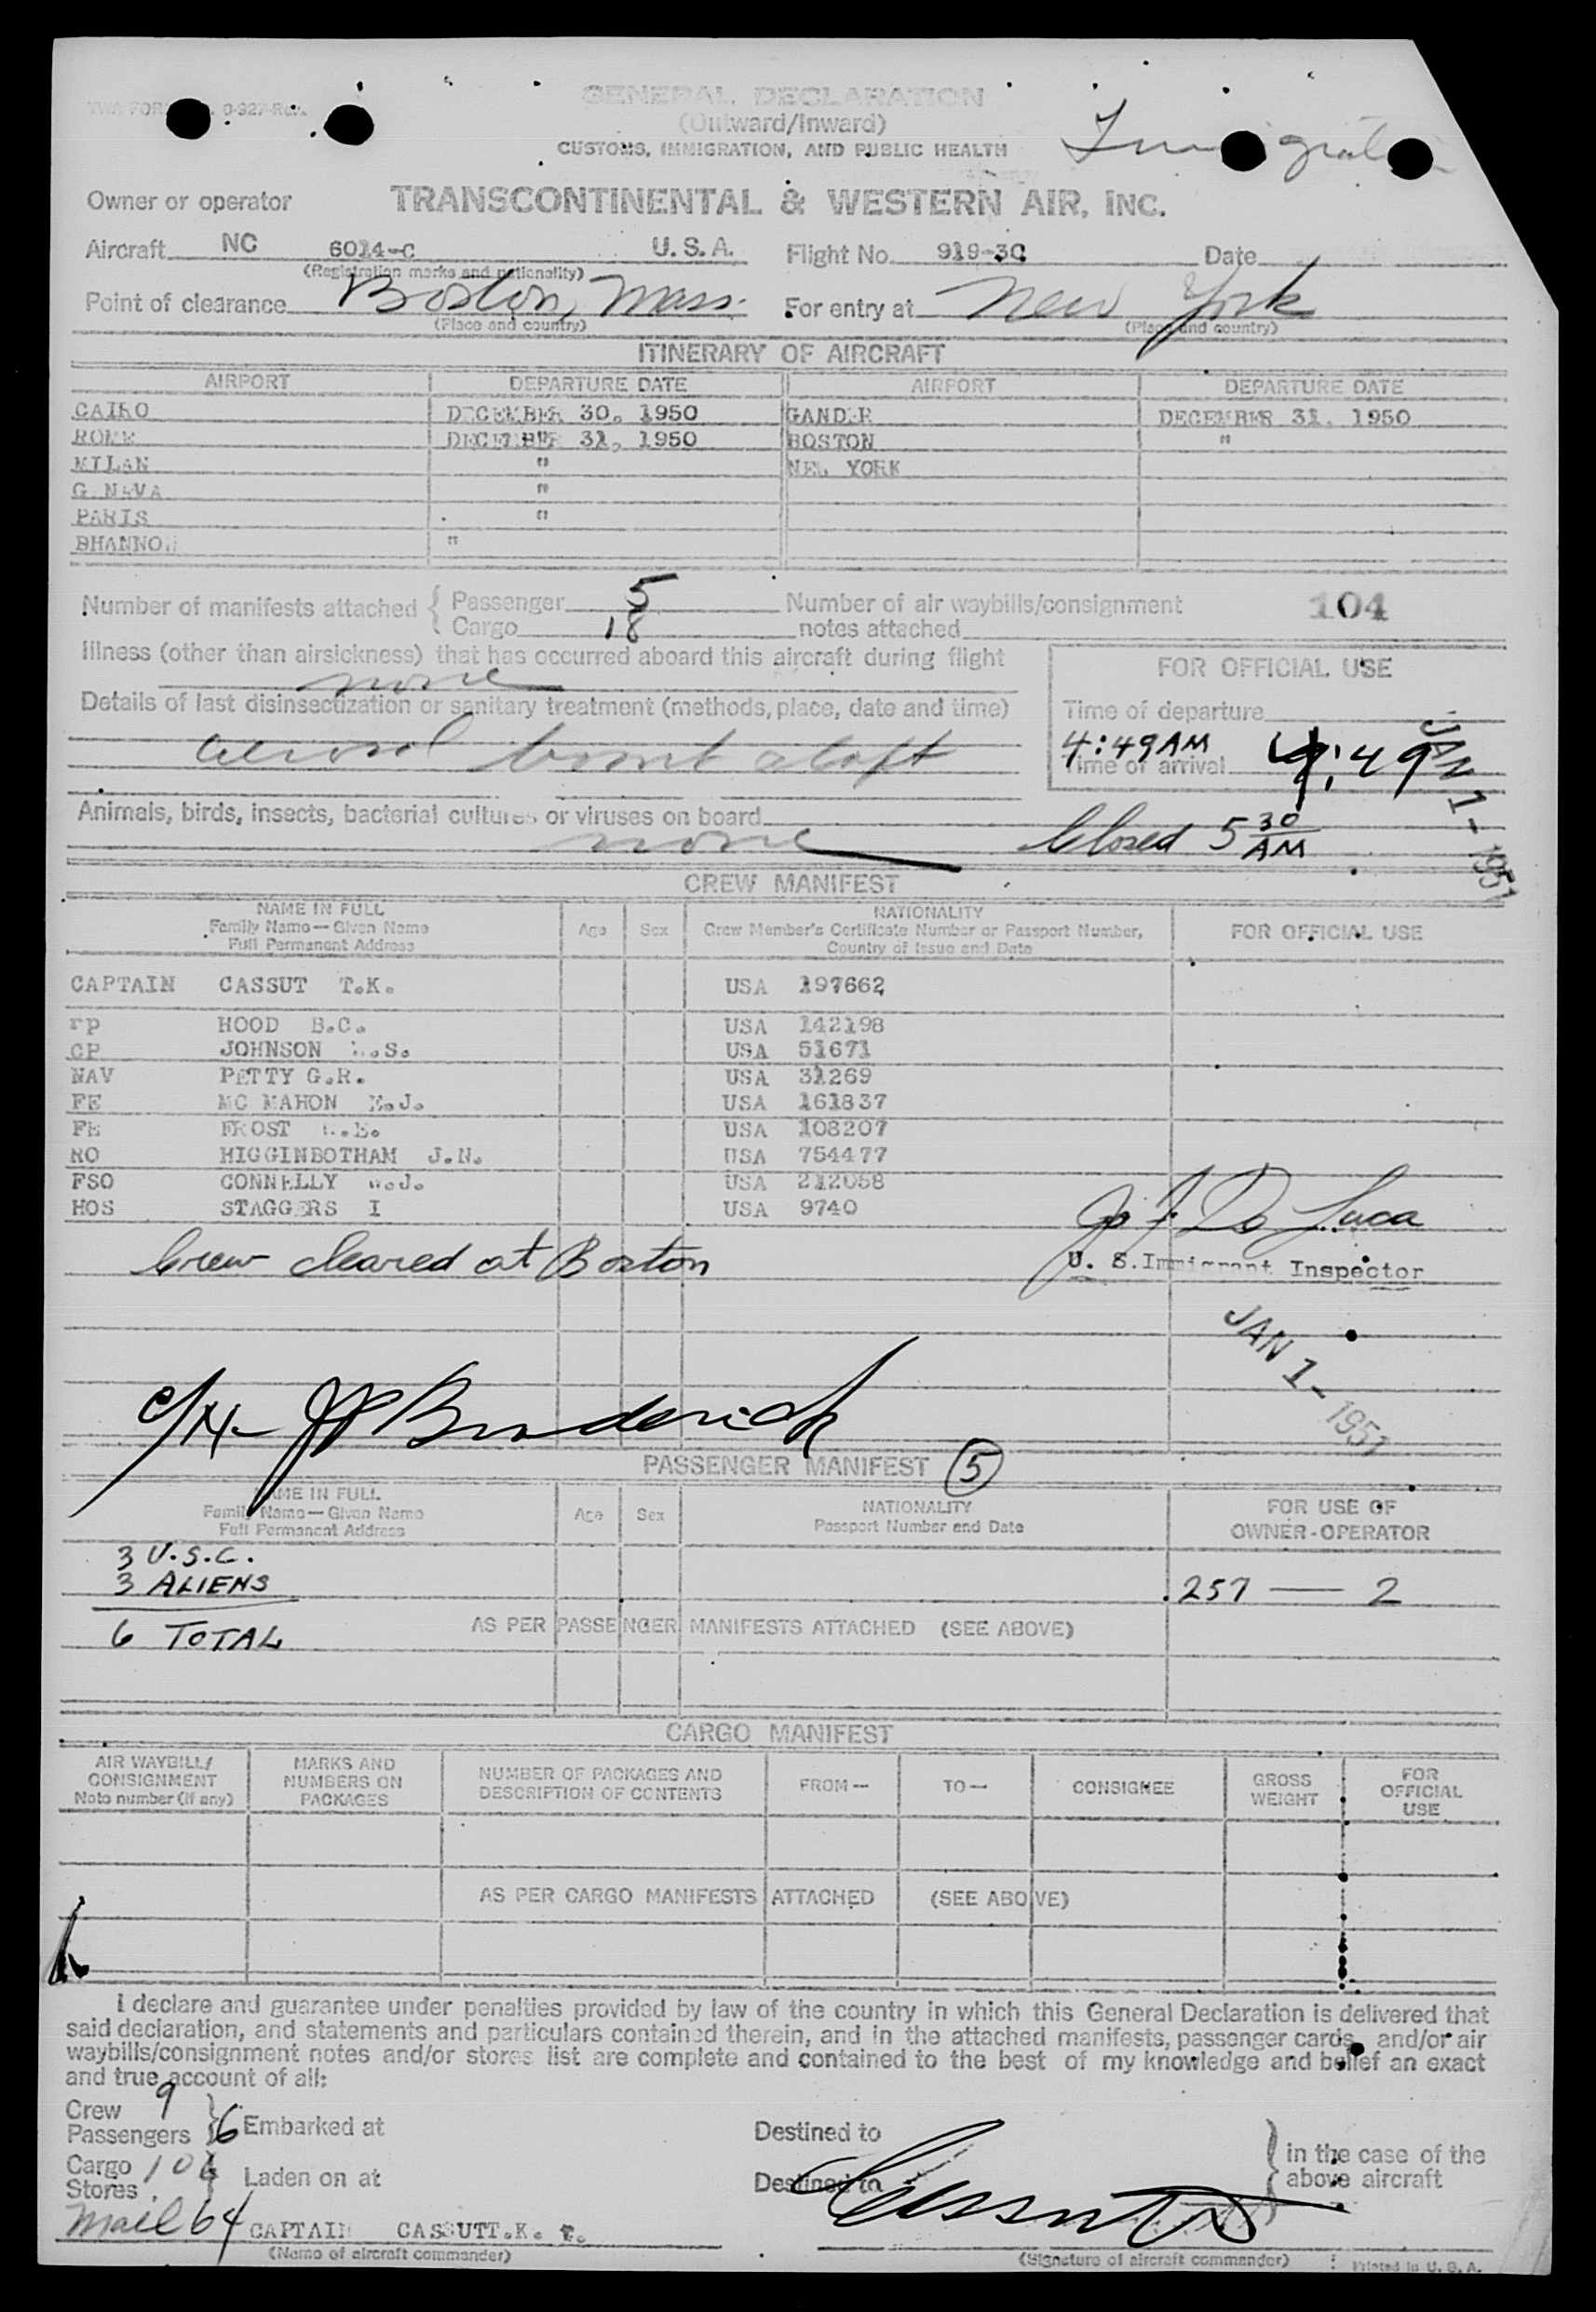 GENERAL DECLARATION
(Outward/Inward)
CUSTOMS, IMMIGRATION, AND PUBLIC HEALTH
Owner or operator TRANSCONTINENTAL & WESTERN AIR, INC.
Aircraft NC 6014-C U.S.A. Flight No. 919-30 Date
(Registration marks and nationality)
Point of clearance Boston, Mass. For entry at New York
(Place and country) (Place and country)
ITINERARY OF AIRCRAFT
AIRPORT DEPARTURE DATE AIRPORT DEPARTURE DATE
CAIRO DECEMBER 30, 1950 GANDER DECEMBER 31, 1950
ROME DECEMBER 31, 1950 BOSTON "
MILAN " NEW YORK
G NEVA "
PARIS "
SHANNON "
Number of manifests attached { Passenger 5 Number of air waybills/consignment 104
Cargo 18 notes attached
Illness (other than airsickness) that has occurred aboard this aircraft during flight
none
FOR OFFICIAL USE
Details of last disinsectization or sanitary treatment (methods, place, date and time)
aerosol bomb aloft
Time of departure
4:49AM
Time of arrival 4:49
JAN 1- 1951
Animals, birds, insects, bacterial cultures or viruses on board
none
Closed 5 30 AM
CREW MANIFEST
NAME IN FULL
Family Name—Given Name
Full Permanent Address
Age Sex
NATIONALITY
Crew Member's Certificate Number or Passport Number,
Country of Issue and Date
FOR OFFICIAL USE
CAPTAIN CASSUT T.K. USA 197662
rp HOOD B.C. USA 142198
CP JOHNSON .S. USA 51671
NAV PETTY G.R. USA 31269
FE MC MAHON E.J. USA 161837
FE FROST USA 108207
RO HIGGINBOTHAM J.N. USA 754477
FSO CONNELLY .J. USA 212058
HOS STAGGERS I USA 9740
J. De Luca
U. S. Immigrant Inspector
Crew cleared at Boston
JAN 1- 1951
Broderick
PASSENGER MANIFEST 5
NAME IN FULL
Family Name—Given Name
Full Permanent Address
Age Sex
NATIONALITY
Passport Number and Date
FOR USE OF
OWNER-OPERATOR
3 U.S.C.
3 ALIENS 257 — 2
6 TOTAL AS PER PASSENGER MANIFESTS ATTACHED (SEE ABOVE)
CARGO MANIFEST
AIR WAYBILL/
CONSIGNMENT
Note number (if any)
MARKS AND
NUMBERS ON
PACKAGES
NUMBER OF PACKAGES AND
DESCRIPTION OF CONTENTS
FROM— TO— CONSIGNEE
GROSS
WEIGHT
FOR
OFFICIAL
USE
AS PER CARGO MANIFESTS ATTACHED (SEE ABOVE)
I declare and guarantee under penalties provided by law of the country in which this General Declaration is delivered that
said declaration, and statements and particulars contained therein, and in the attached manifests, passenger cards and/or air
waybills/consignment notes and/or stores list are complete and contained to the best of my knowledge and belief an exact
and true account of all:
Crew 9
Passengers 6 Embarked at Destined to
in the case of the
above aircraft
Cargo
Stores Laden on at Destined to
Mail 64 CAPTAIN CASSUTT.K.
(Name of aircraft commander) (Signature of aircraft commander) Printed in U. S. A.